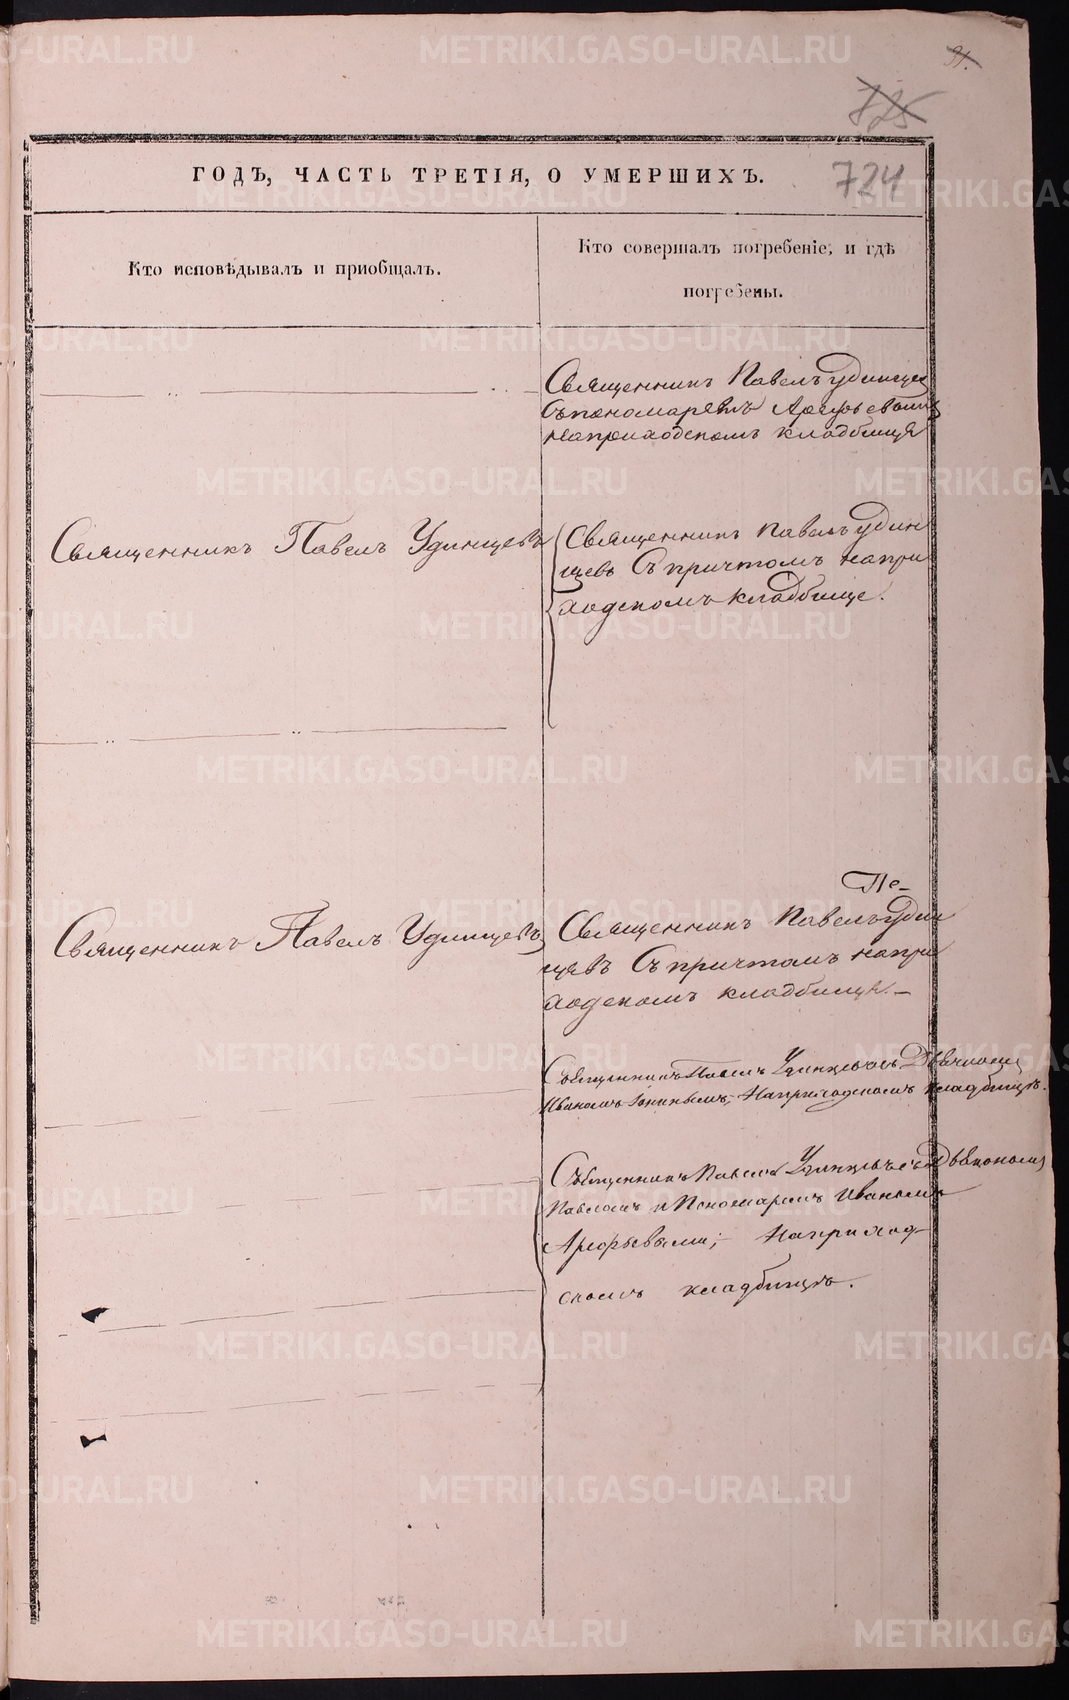 31.
725
724
ГОДЪ, ЧАСТЬ ТРЕТІЯ, О УМЕРШИХЪ.
Кто исповѣдывалъ и приобщалъ.
Кто совершалъ погребеніе, и гдѣ
погребены.
Священникъ Павелъ Удинцев
Съ пономаремъ
на приходскомъ кладбище
Священникъ Павелъ Удинцевъ
Священникъ Павелъ Удин
цевъ Съ причтомъ на при
ходскомъ кладбище.
Пе-
Священникъ Павелъ Удинцевъ
Священникъ Павелъ Удин
цевъ Съ причтомъ на при
ходскомъ кладбище.-
Священникъ Павелъ Удинцевъ съ
Иваномъ на приходскомъ кладбищѣ.
Священникъ Павелъ Удинцевъ съ
Павломъ и Пономаремъ Иваномъ
Арефьевыми; на приход-
скомъ кладбищѣ.
METRIKI.GASO-URAL.RU